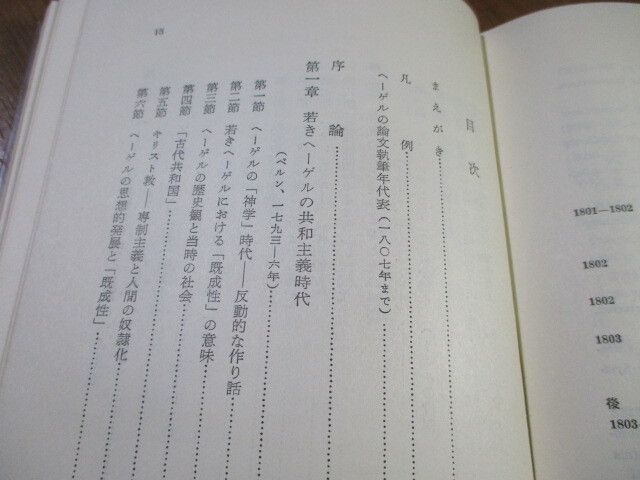 目次
まえがき
凡例
ヘーゲルの論文執筆年代表（一八〇七年まで）
序論
第一章 若きヘーゲルの共和主義時代
（ベルン、一七九三—六年）
第一節 ヘーゲルの「神学」時代——反動的な作り話
第二節 若きヘーゲルにおける「既成性」の意味
第三節 ヘーゲルの歴史観と当時の社会
第四節 「古代共和国」
第五節 キリスト教——専制主義と人間の奴隷化
第六節 ヘーゲルの思想的発展と「既成性」
1801—1802
1802
1802
1803
後
1803